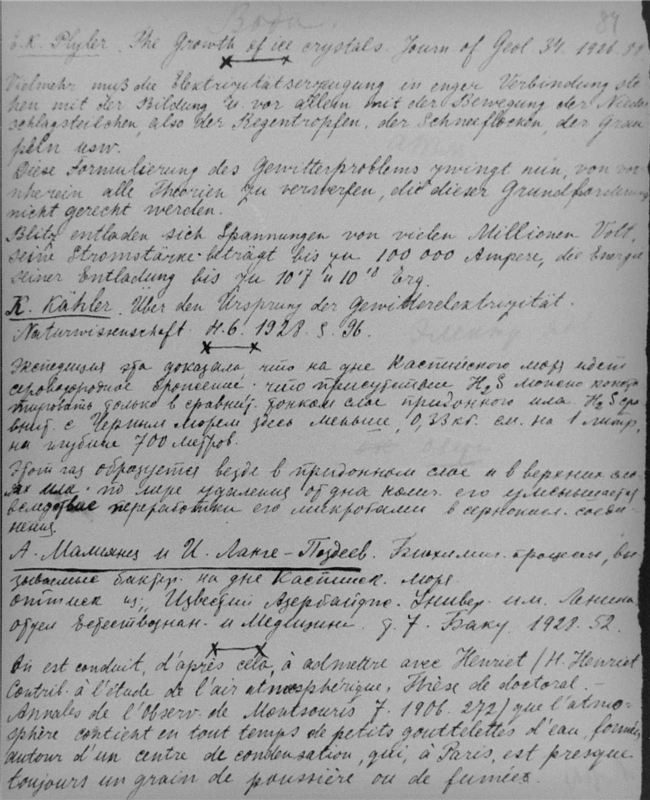 Вода.
84
E. K. Plyler. The Growth of ice crystals. Journ of Geol 34. 1926.
Vielmehr muß die Elektrizitätserzeugung in enger Verbindung ste-
hen mit der Bildung u. vor allem mit der Bewegung der Nieder
schlagsteilchen, also der Regentropfen, der Schneeflocken, der Grau
peln usw.
Diese Formulierung des Gewitterproblems zwingt nun, von vor
nherein alle Theorien zu verwerfen, die dieser Grundforderung
nicht gerecht werden.
Blitz entladen sich Spannungen von vielen Millionen Volt,
seine Stromstärke beträgt bis zu 100 000 Ampere, die Energie
seiner Entladung bis zu Erg.
K. Kähler. Über den Ursprung der Gewitterelektrizität.
Naturwissenschaft H. 6. 1928. S. 96.
Экспедиция эта доказала, что на дне Каспийского моря идет
сероводородное брожение. что присутствие H2S можно конста
тировать только в сравнит. тонком слое придонного ила H2S сра
внит. с Черным морем здесь меньше, 0,33 к. см. на 1 литр,
на глубине 700 метров.
Этот газ образуется везде в придонном слое и в верхних сло-
ях ила. по мере удаления от дна колич. его уменьшается
вследствие переработки его микробами в сернокисл. соеди-
нения.
А. Малиянц и И. Ланге-Поздеев. Биохимич. процессы, вы
зываемые бактер. на дне Каспийск. моря
оттиск из „Известий Азербайдж. Универ. им. Ленина
отдел Естествознан. и Медицины. т. 7. Баку 1928. 52.
On est conduit, d'après cela, à admettre avec Henriet (H. Henriet
Contrib. à l'étude de l'air atmosphérique, Thèse de doctorat. –
Annales de l'Observ. de Montsouris 7. 1906. 272) que l'atmo-
sphère contient en tout temps de petits gouttelettes d'eau, formées
autour d'un centre de condensation, qui, à Paris, est presque
toujours un grain de poussière ou de fumées.